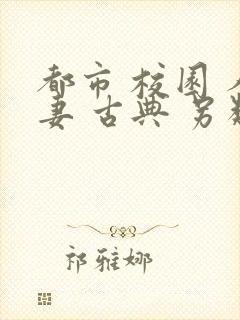 都市 校园
妻 古典 另
祁雅娜